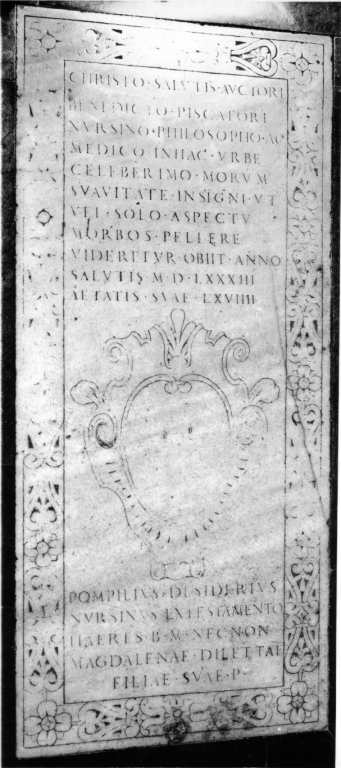 CHRISTO · SALVTIS · AVCTORI
BENEDICTO · PISCATORI
NVRSINO · PHILOSOPHO · AC
MEDICO IN HAC · VRBE
CELEBERIMO · MORVM
SVAVITATE · INSIGNI · VT
VEL · SOLO · ASPECTV
MORBOS · PELLERE
VIDERITVR · OBIIT · ANNO
SALVTIS · M · D · LXXXIII
AETATIS · SVAE · LXVIIII
POMPILIVS · DESIDERIVS
NVRSINVS · EX TESTAMENTO
HAERES · B · M · NEC NON
MAGDALENAE · DILETTAE
FILIAE · SVAE · P ·